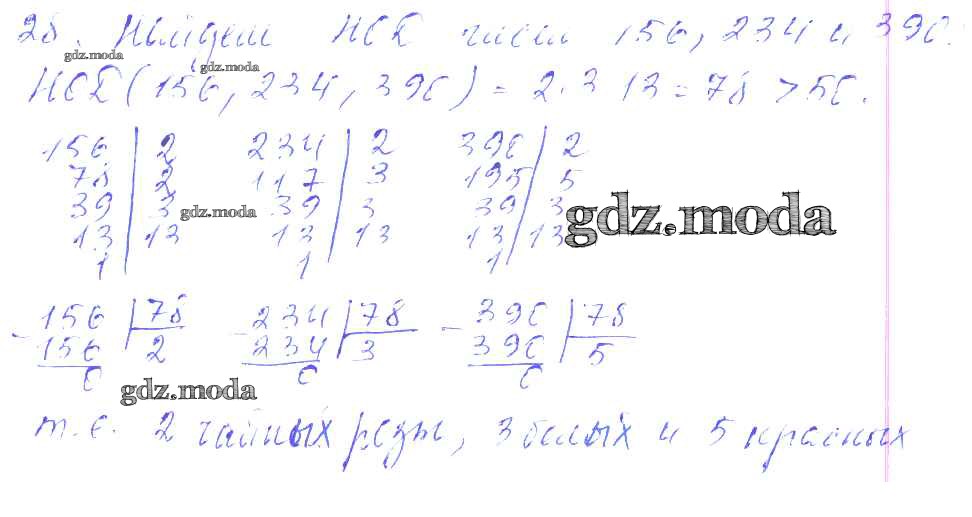 28. Найдем НОД чисел 156, 234 и 390.
gdz.moda
gdz.moda
НОД (156, 234, 390) = 2 · 3 · 13 = 78 > 50.
156 | 2 234 | 2 390 | 2
78 | 2 117 | 3 195 | 5
39 | 3 39 | 3 39 | 3
gdz.moda
gdz.moda
13 | 13 13 | 13 13 | 13
1 1 1
- 156 | 78 - 234 | 78 - 390 | 78
156 2 234 3 390 5
0 0 0
gdz.moda
т.е. 2 чайных розы, 3 белых и 5 красных